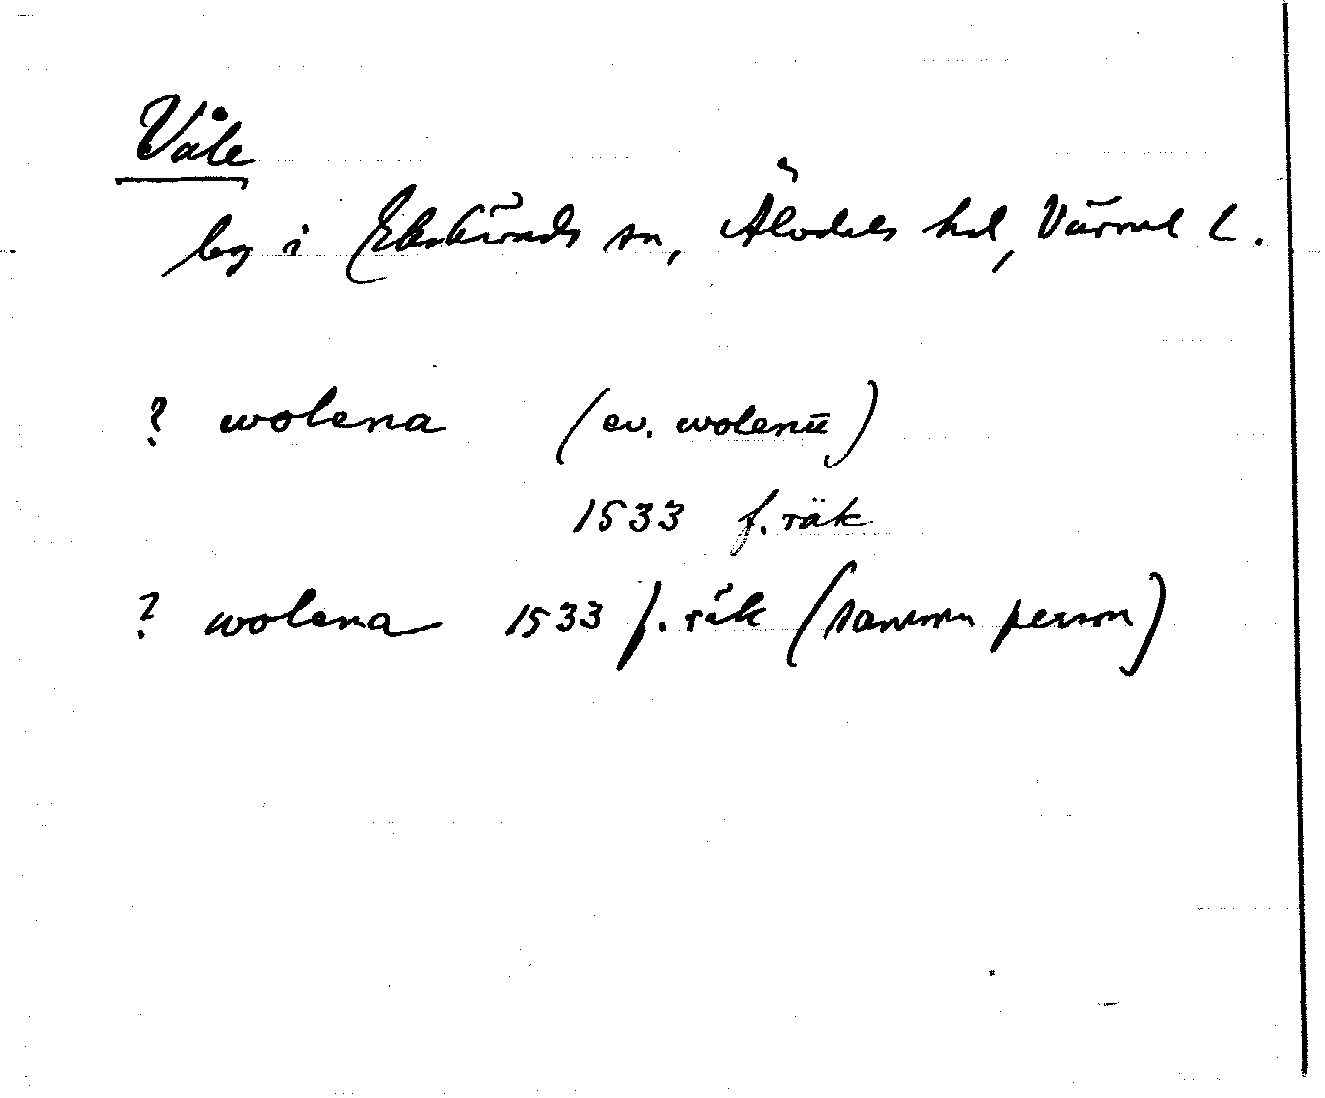 Våle
by i Ekshärads sn, Älvdals hd, Värml l.
? wolena (ev. wolenü)
1533 f. räk
? wolena 1533 f. räk (samma person)